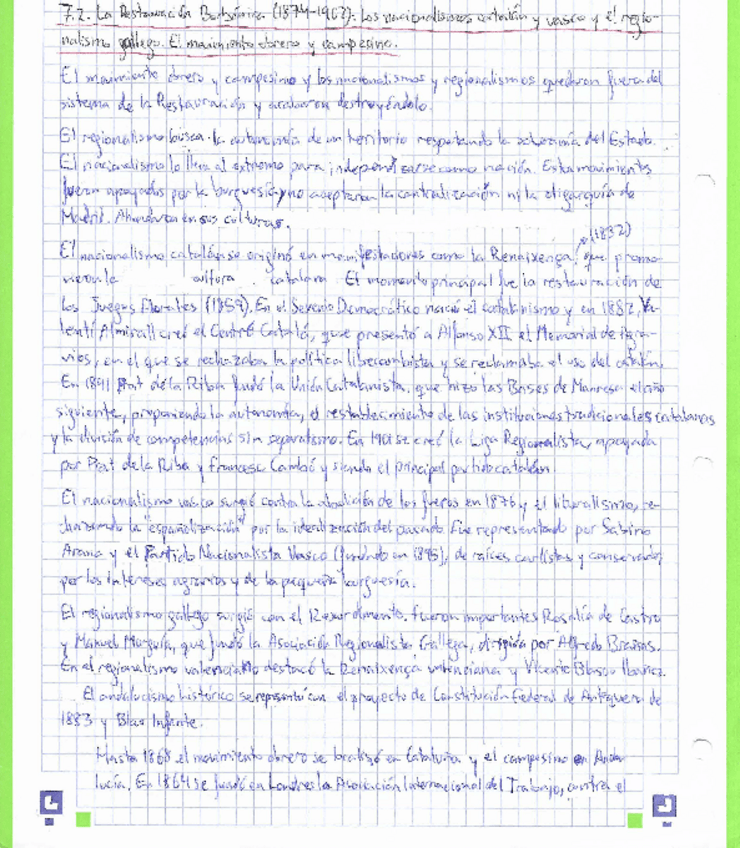 7.2. La Restauración Borbónica (1874-1902): Los nacionalismos catalán y vasco y el regio-
nalismo gallego. El movimiento obrero y campesino.
El movimiento obrero y campesino y los nacionalismos y regionalismos quedaron fuera del
sistema de la Restauración y acabaron destruyéndolo.
El regionalismo busca la autonomía de un territorio respetando la soberanía del Estado.
El nacionalismo lo lleva al extremo para independizarse como nación. Estos movimientos
fueron apoyados por la burguesía y no aceptaron la centralización ni la oligarquía de
Madrid. Ahondaron en sus culturas.
(1832)
El nacionalismo catalán se originó en manifestaciones como la Renaixença, que promo-
vieron la cultura catalana. El momento principal fue la restauración de
los Juegos Florales (1859). En el Sexenio Democrático nació el catalanismo y en 1882, Va-
lentí Almirall creó el Centre Català, que presentó a Alfonso XII el Memorial de Agra-
vios, en el que se rechazaba la política librecambista y se reclamaba el uso del catalán.
En 1891 Prat de la Riba fundó la Unió Catalanista, que hizo las Bases de Manresa el año
siguiente, proponiendo la autonomía, el restablecimiento de las instituciones tradicionales catalanas
y la división de competencias sin separatismo. En 1901 se creó la Liga Regionalista, apoyada
por Prat de la Riba y Francesc Cambó y siendo el principal partido catalán.
El nacionalismo vasco surgió contra la abolición de los fueros en 1876 y el liberalismo, re-
chazando la "españolización" por la idealización del pasado. Fue representado por Sabino
Arana y el Partido Nacionalista Vasco (fundado en 1895), de raíces carlistas y conservador,
por los intereses agrarios y de la pequeña burguesía.
El regionalismo gallego surgió con el Rexurdimento. Fueron importantes Rosalía de Castro
y Manuel Murguía, que fundó la Asociación Regionalista Gallega, dirigida por Alfredo Brañas.
En el regionalismo valenciano destacó la Renaixença valenciana y Vicente Blasco Ibáñez.
El andalucismo histórico se representó con el proyecto de Constitución Federal de Antequera de
1883 y Blas Infante.
Hasta 1868 el movimiento obrero se localizó en Cataluña y el campesino en Anda-
lucía. En 1864 se fundó en Londres la Asociación Internacional del Trabajo, contra el